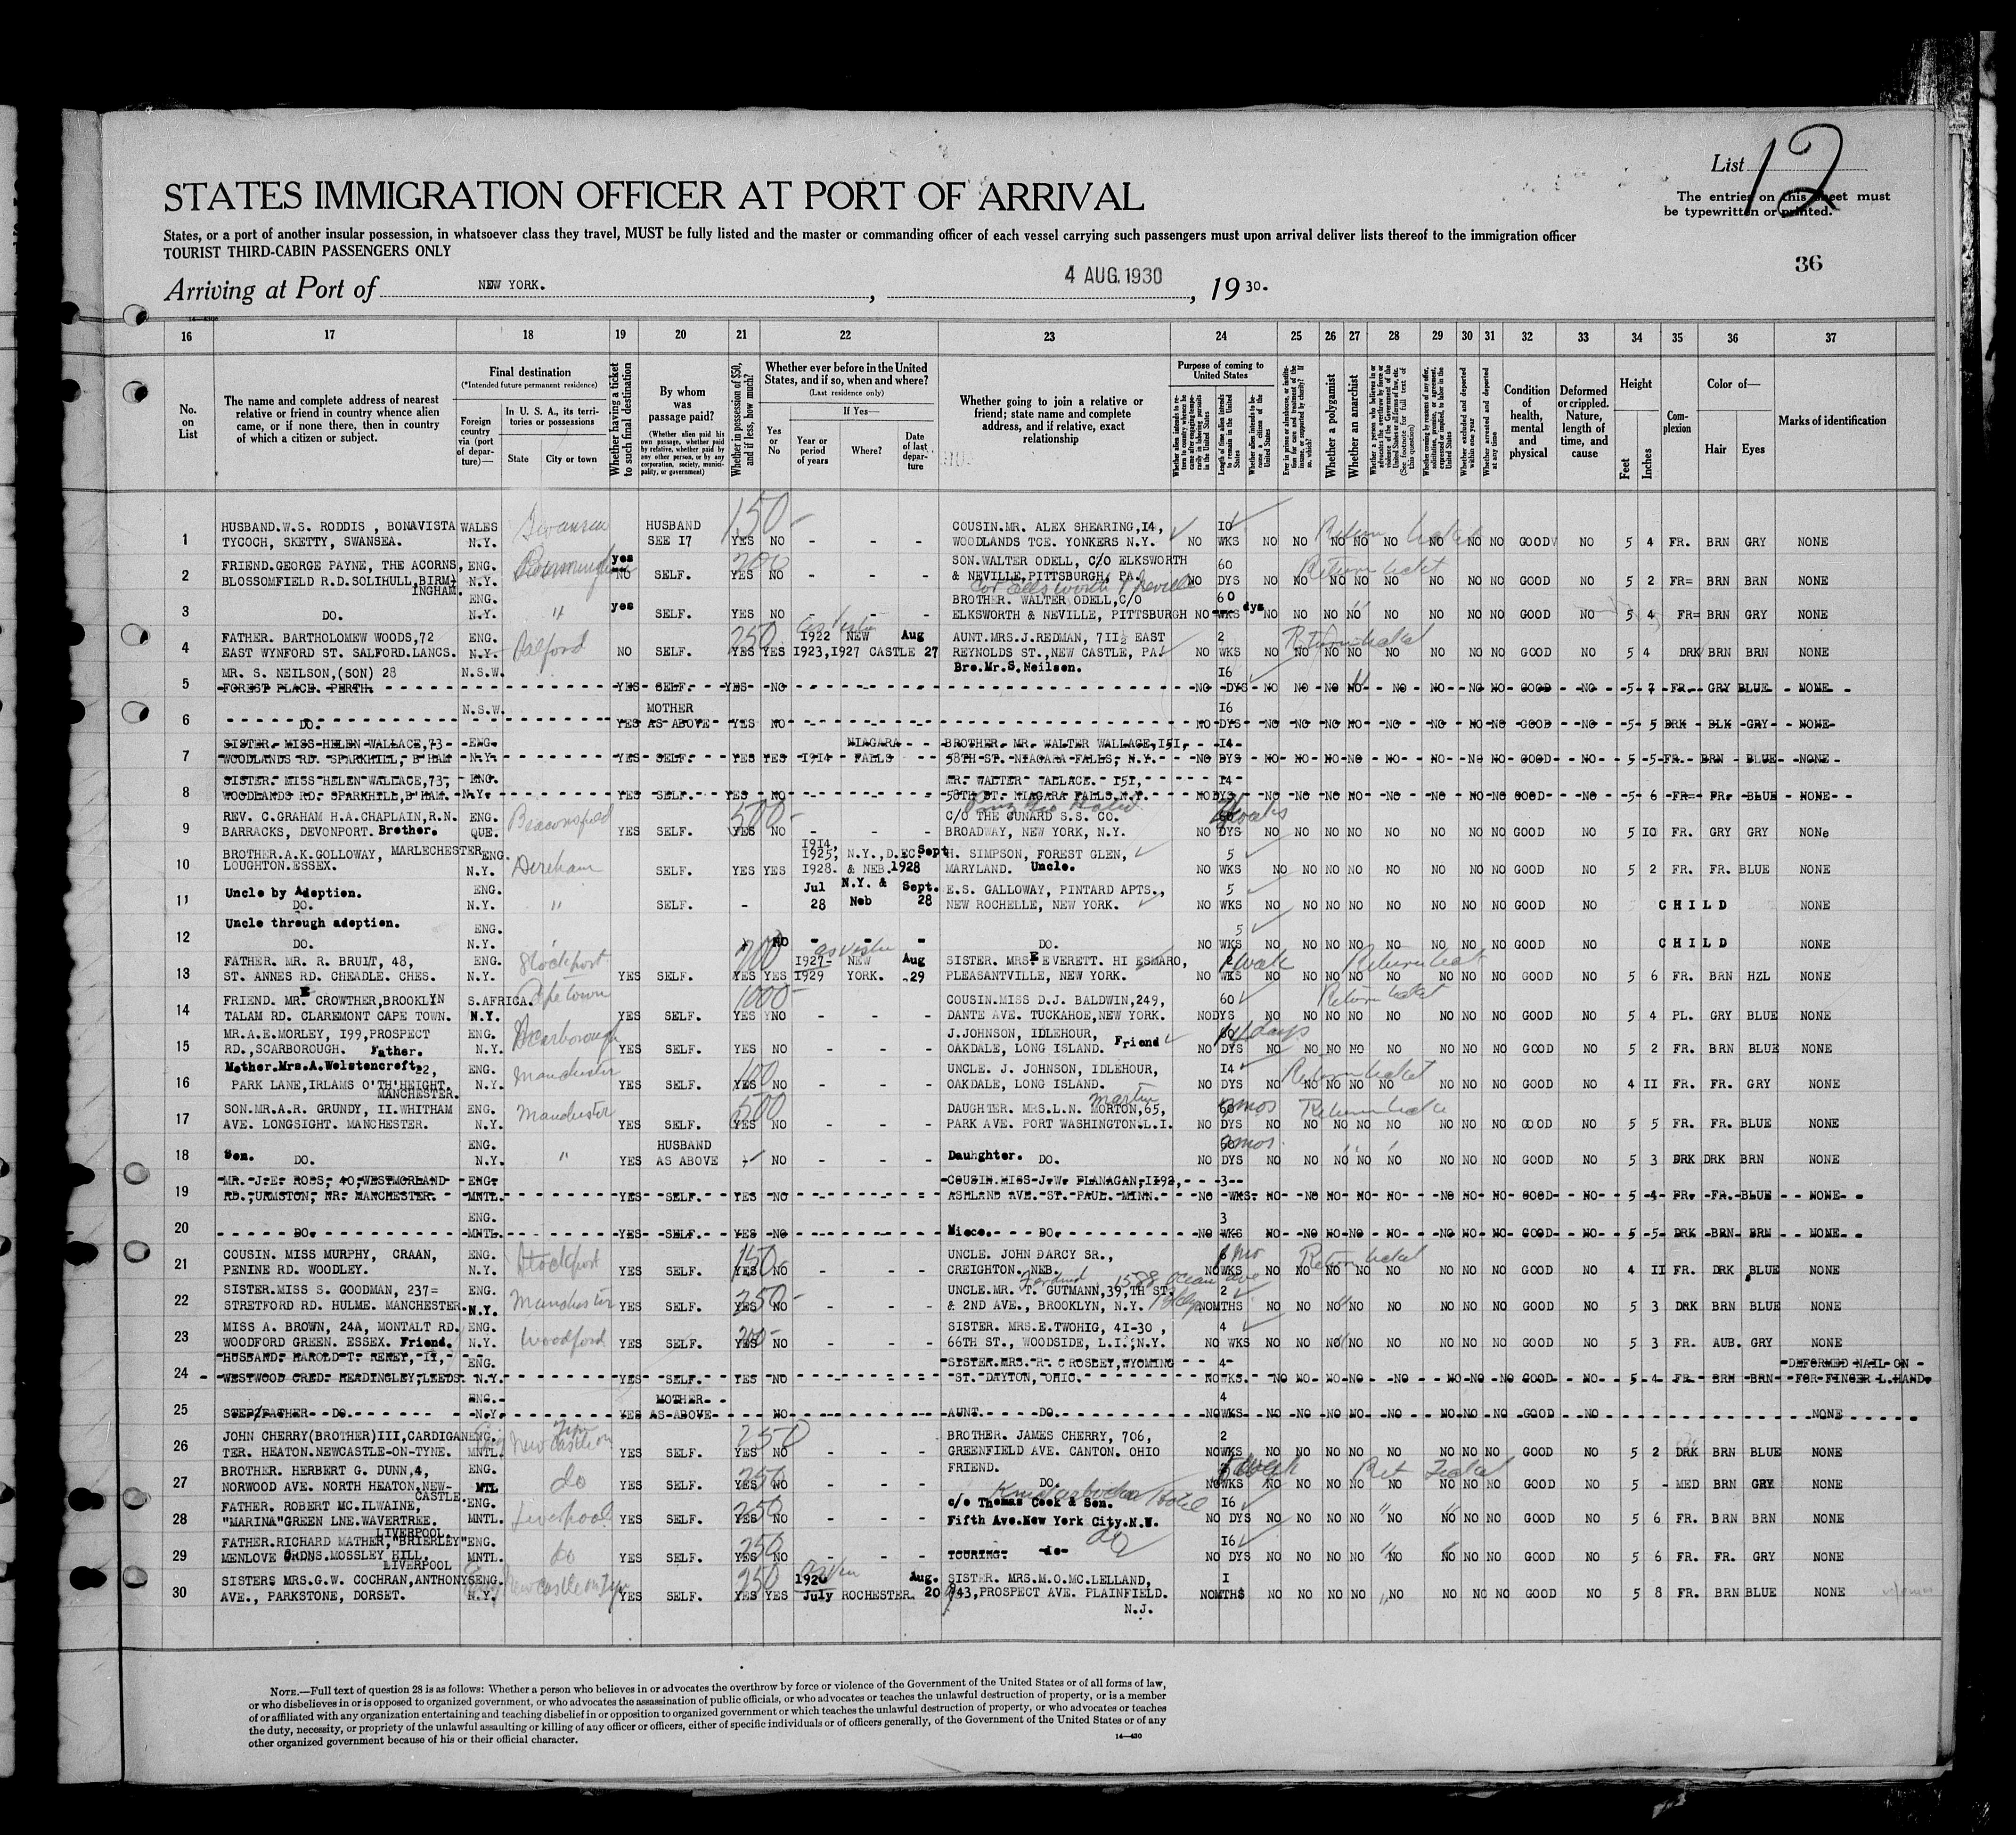 List 12
STATES IMMIGRATION OFFICER AT PORT OF ARRIVAL
The entries on this sheet must
be typewritten or printed.
States, or a port of another insular possession, in whatsoever class they travel, MUST be fully listed and the master or commanding officer of each vessel carrying such passengers must upon arrival deliver lists thereof to the immigration officer
TOURIST THIRD-CABIN PASSENGERS ONLY
36
Arriving at Port of NEW YORK. , 4 AUG. 1930 , 1930.
16 17 18 19 20 21 22 23 24 25 26 27 28 29 30 31 32 33 34 35 36 37
No. on List
The name and complete address of nearest relative or friend in country whence alien came, or if none there, then in country of which a citizen or subject.
Final destination
(*Intended future permanent residence)
Foreign country via (port of departure)—
In U. S. A., its territories or possessions
State City or town
Whether having a ticket to such final destination
By whom was passage paid?
(Whether alien paid his own passage, whether paid by relative, whether paid by any other person, or by any corporation, society, municipality, or government)
Whether in possession of $50, and if less, how much?
Whether ever before in the United States, and if so, when and where?
(Last residence only)
If Yes—
Yes or No
Year or period of years
Where?
Date of last departure
Whether going to join a relative or friend; state name and complete address, and if relative, exact relationship
Purpose of coming to United States
Whether a polygamist
Whether an anarchist
Condition of health, mental and physical
Deformed or crippled. Nature, length of time, and cause
Height
Feet Inches
Complexion
Color of—
Hair Eyes
Marks of identification
1 HUSBAND.W.S. RODDIS , BONAVISTA WALES Swansea HUSBAND 150- COUSIN.MR. ALEX SHEARING,14, 10 Return ticket
TYCOCH, SKETTY, SWANSEA. N.Y. SEE 17 YES NO - - - WOODLANDS TCE. YONKERS N.Y. NO WKS NO NO NO NO NO NO NO NO GOOD NO 5 4 FR. BRN GRY NONE
2 FRIEND.GEORGE PAYNE, THE ACORNS, ENG. yes 200 SON.WALTER ODELL, C/O ELKSWORTH 60 Return ticket
BLOSSOMFIELD R.D.SOLIHULL,BIRM- N.Y. NO SELF. YES NO - - - & NEVILLE,PITTSBURGH, PA. NO DYS NO NO NO NO NO NO NO NO GOOD NO 5 2 FR= BRN BRN NONE
INGHAM.
3 ENG. yes BROTHER. WALTER ODELL,C/O 60 dys
DO. N.Y. " SELF. YES NO - - - ELKSWORTH & NEVILLE, PITTSBURGH NO WKS NO NO NO NO NO NO NO NO GOOD NO 5 4 FR= BRN GRY NONE
4 FATHER. BARTHOLOMEW WOODS,72 ENG. Salford 250- 1922 NEW Aug AUNT.MRS.J.REDMAN, 711½ EAST 2 Return ticket
EAST WYNFORD ST. SALFORD.LANCS. N.Y. NO SELF. YES YES 1923,1927 CASTLE 27 REYNOLDS ST.,NEW CASTLE, PA. NO WKS NO NO NO NO NO NO NO NO GOOD NO 5 4 DRK BRN BRN NONE
5 MR. S. NEILSON,(SON) 28 N.S.W. Bro.Mr.S.Neilson. 16
FOREST PLACE. PERTH. YES SELF. YES NO - - - NO DYS NO NO NO NO NO NO NO NO GOOD NO 5 7 FR. GRY BLUE NONE
6 N.S.W. MOTHER 16
DO. YES AS ABOVE YES NO - - - NO DYS NO NO NO NO NO NO NO NO GOOD NO 5 5 DRK BLK GRY NONE
7 SISTER. MISS HELEN WALLACE,73 ENG. NIAGARA BROTHER. MR. WALTER WALLACE,151, 14
WOODLANDS RD. SPARKHILL, B'HAM N.Y. YES SELF. YES YES 1914 FALLS 58TH ST. NIAGARA FALLS, N.Y. NO DYS NO NO NO NO NO NO NO NO GOOD NO 5 5 FR. BRN BLUE NONE
8 SISTER. MISS HELEN WALLACE,73, ENG. MR. WALTER WALLACE. 151, 14
WOODLANDS RD. SPARKHILL,B'HAM. N.Y. YES SELF. YES NO - - - 58TH ST. NIAGARA FALLS,N.Y. NO DYS NO NO NO NO NO NO NO NO GOOD NO 5 6 FR= FR. BLUE NONE
9 REV. C.GRAHAM H.A.CHAPLAIN,R.N. ENG. Beaconsfield 500- C/O THE CUNARD S.S. CO. 60
BARRACKS, DEVONPORT. Brother. QUE. YES SELF. YES NO - - - BROADWAY, NEW YORK, N.Y. NO DYS NO NO NO NO NO NO NO NO GOOD NO 5 10 FR. GRY GRY NONe
10 BROTHER.A.K.GOLLOWAY, MARLECHESTER ENG. Dereham 1914, 1925, N.Y.,D.EC. Sept H. SIMPSON, FOREST GLEN, 5
LOUGHTON.ESSEX. N.Y. SELF. YES YES 1928. & NEB. 1928 MARYLAND. Uncle. NO WKS NO NO NO NO NO NO NO NO GOOD NO 5 2 FR. FR. BLUE NONE
11 Uncle by Adoption. ENG. Jul N.Y. & Sept. E.S. GALLOWAY, PINTARD APTS., 5
DO. N.Y. " SELF. - 28 Neb 28 NEW ROCHELLE, NEW YORK. NO WKS NO NO NO NO NO NO NO NO GOOD NO CHILD NONE
12 Uncle through adoption. ENG. 5
DO. N.Y. NO - - - DO. NO WKS NO NO NO NO NO NO NO NO GOOD NO CHILD NONE
13 FATHER. MR. R. BRUIT, 48, ENG. Stockport 200 1927- NEW Aug SISTER. MRS E EVERETT. HI ESMARO, 1 Week Return ticket
ST. ANNES RD. CHEADLE. CHES. N.Y. YES SELF. YES YES 1929 YORK. 29 PLEASANTVILLE, NEW YORK. NO WKS NO NO NO NO NO NO NO NO GOOD NO 5 6 FR. BRN HZL NONE
14 FRIEND. MR. CROWTHER,BROOKLYN S.AFRICA. Cape town 1000- COUSIN.MISS D.J. BALDWIN,249, 60 Return ticket
TALAM RD. CLAREMONT CAPE TOWN. N.Y. YES SELF. YES NO - - - DANTE AVE. TUCKAHOE,NEW YORK. NO DYS NO NO NO NO NO NO NO NO GOOD NO 5 4 PL. GRY BLUE NONE
15 MR.A.E.MORLEY, 199,PROSPECT ENG. Scarborough J.JOHNSON, IDLEHOUR, Friend 14 days
RD.,SCARBOROUGH. Father. N.Y. YES SELF. YES NO - - - OAKDALE, LONG ISLAND. NO DYS NO NO NO NO NO NO NO NO GOOD NO 5 2 FR. BRN BLUE NONE
16 Mother.Mrs.A.Wolstencroft 22, ENG. Manchester 100 UNCLE. J. JOHNSON, IDLEHOUR, 14 Return ticket
PARK LANE,IRLAMS O'TH'HEIGHT. N.Y. YES SELF. YES NO - - - OAKDALE, LONG ISLAND. NO DYS NO NO NO NO NO NO NO NO GOOD NO 4 11 FR. FR. GRY NONE
MANCHESTER.
17 SON.MR.A.R. GRUNDY, 11.WHITHAM ENG. Manchester 500 DAUGHTER. MRS.L.N. MORTON,65, Martin 60 mos Return ticket
AVE. LONGSIGHT. MANCHESTER. N.Y. YES SELF. YES NO - - - PARK AVE. PORT WASHINGTON.L.I. NO DYS NO NO NO NO NO NO NO NO GOOD NO 5 5 FR. FR. BLUE NONE
18 Son. ENG. HUSBAND 60 mos.
DO. N.Y. " YES AS ABOVE - NO - - - Dauhghter. DO. NO DYS NO NO NO NO NO NO NO NO GOOD NO 5 3 DRK DRK BRN NONE
19 MR. J.E. ROSS, 40,WESTMORLAND ENG. COUSIN.MISS J.W. FLANAGAN,1192, 3
RD.,URMSTON, NR. MANCHESTER. MNTL. YES SELF. YES NO - - - ASHLAND AVE. ST. PAUL. MINN. NO WKS. NO NO NO NO NO NO NO NO GOOD NO 5 4 FR. FR. BLUE NONE
20 ENG. 3
DO. MNTL. YES SELF. YES NO - - - Niece. DO. NO WKS NO NO NO NO NO NO NO NO GOOD NO 5 5 DRK BRN BRN NONE
21 COUSIN. MISS MURPHY, CRAAN, ENG. Stockport 150 UNCLE. JOHN DARCY SR., mo Return ticket
PENINE RD. WOODLEY. N.Y. YES SELF. YES NO - - - CREIGHTON, NEB. NO WKS NO NO NO NO NO NO NO NO GOOD NO 4 11 FR. DRK BLUE NONE
22 SISTER.MISS S. GOODMAN, 237= ENG. Manchester 250- UNCLE.MR. T. GUTMANN,39,TH ST. 1588 Ocean ave 2
STRETFORD RD. HULME. MANCHESTER. N.Y. YES SELF. YES NO - - - & 2ND AVE., BROOKLYN, N.Y. Bklyn NO MTHS NO NO NO NO NO NO NO NO GOOD NO 5 3 DRK BRN BLUE NONE
23 MISS A. BROWN, 24A, MONTALT RD. ENG. Woodford 200- SISTER. MRS.E.TWOHIG, 41-30 , 4
WOODFORD GREEN. ESSEX. Friend. N.Y. YES SELF. YES NO - - - 66TH ST., WOODSIDE, L.I.,N.Y. NO WKS NO NO NO NO NO NO NO NO GOOD NO 5 3 FR. AUB. GRY NONE
24 HUSBAND. HAROLD T. RENEY, 11, ENG. SISTER.MRS. R. CROSLEY,WYOMING 4 DEFORMED NAIL ON
WESTWOOD CRED. HEADINGLEY,LEEDS. N.Y. YES SELF. YES NO - - - ST. DAYTON, OHIO. NO WKS. NO NO NO NO NO NO NO NO GOOD NO 5 4 FR BRN BRN FOR FINGER L.HAND.
25 ENG. MOTHER 4
STEP/FATHER DO. N.Y. YES AS ABOVE NO - - - AUNT. DO. NO WKS NO NO NO NO NO NO NO NO GOOD NO NONE
26 JOHN CHERRY(BROTHER)111,CARDIGAN ENG. Newcastle on Tyne 250 BROTHER. JAMES CHERRY, 706, 2
TER. HEATON.NEWCASTLE-ON-TYNE. MNTL. YES SELF. YES NO - - - GREENFIELD AVE. CANTON. OHIO NO WKS NO NO NO NO NO NO NO NO GOOD NO 5 2 DRK BRN BLUE NONE
27 BROTHER. HERBERT G. DUNN,4, ENG. do 250 FRIEND. Week Ret Ticket
NORWOOD AVE. NORTH HEATON,NEW- MTL YES SELF. YES NO - - - DO. NO WKS NO NO NO NO NO NO NO NO GOOD NO 5 - MED BRN GRY NONE
CASTLE.
28 FATHER. ROBERT MC.ILWAINE, ENG. Liverpool 250 Knickerbocker Hotel c/o Thomas Cook & Son. 16
"MARINA"GREEN LNE.WAVERTREE. MNTL. YES SELF. YES NO - - - Fifth Ave.New York City.N.W. NO DYS NO NO NO NO NO NO NO NO GOOD NO 5 6 FR. BRN BRN NONE
LIVERPOOL.
29 FATHER.RICHARD MATHER,"BRIERLEY" ENG. do 250 do 16
MENLOVE GRDNS.MOSSLEY HILL. MNTL. YES SELF. YES NO - - - TOURING. -do- NO DYS NO NO NO NO NO NO NO NO GOOD NO 5 6 FR. FR. GRY NONE
LIVERPOOL
30 SISTERS MRS.G.W. COCHRAN,ANTHONYS ENG. Newcastle on Tyne 250 1920 Aug. SISTER. MRS.M.O.MC.LELLAND, 1
AVE., PARKSTONE, DORSET. N.Y. YES SELF. YES YES July ROCHESTER. 20 943,PROSPECT AVE. PLAINFIELD. NO MTHS NO NO NO NO NO NO NO NO GOOD NO 5 8 FR. BRN BLUE NONE
N.J.
NOTE.—Full text of question 28 is as follows: Whether a person who believes in or advocates the overthrow by force or violence of the Government of the United States or of all forms of law,
or who disbelieves in or is opposed to organized government, or who advocates the assassination of public officials, or who advocates or teaches the unlawful destruction of property, or is a member
of or affiliated with any organization entertaining and teaching disbelief in or opposition to organized government or which teaches the unlawful destruction of property, or who advocates or teaches
the duty, necessity, or propriety of the unlawful assaulting or killing of any officer or officers, either of specific individuals or of officers generally, of the Government of the United States or of any
other organized government because of his or their official character.
14—430